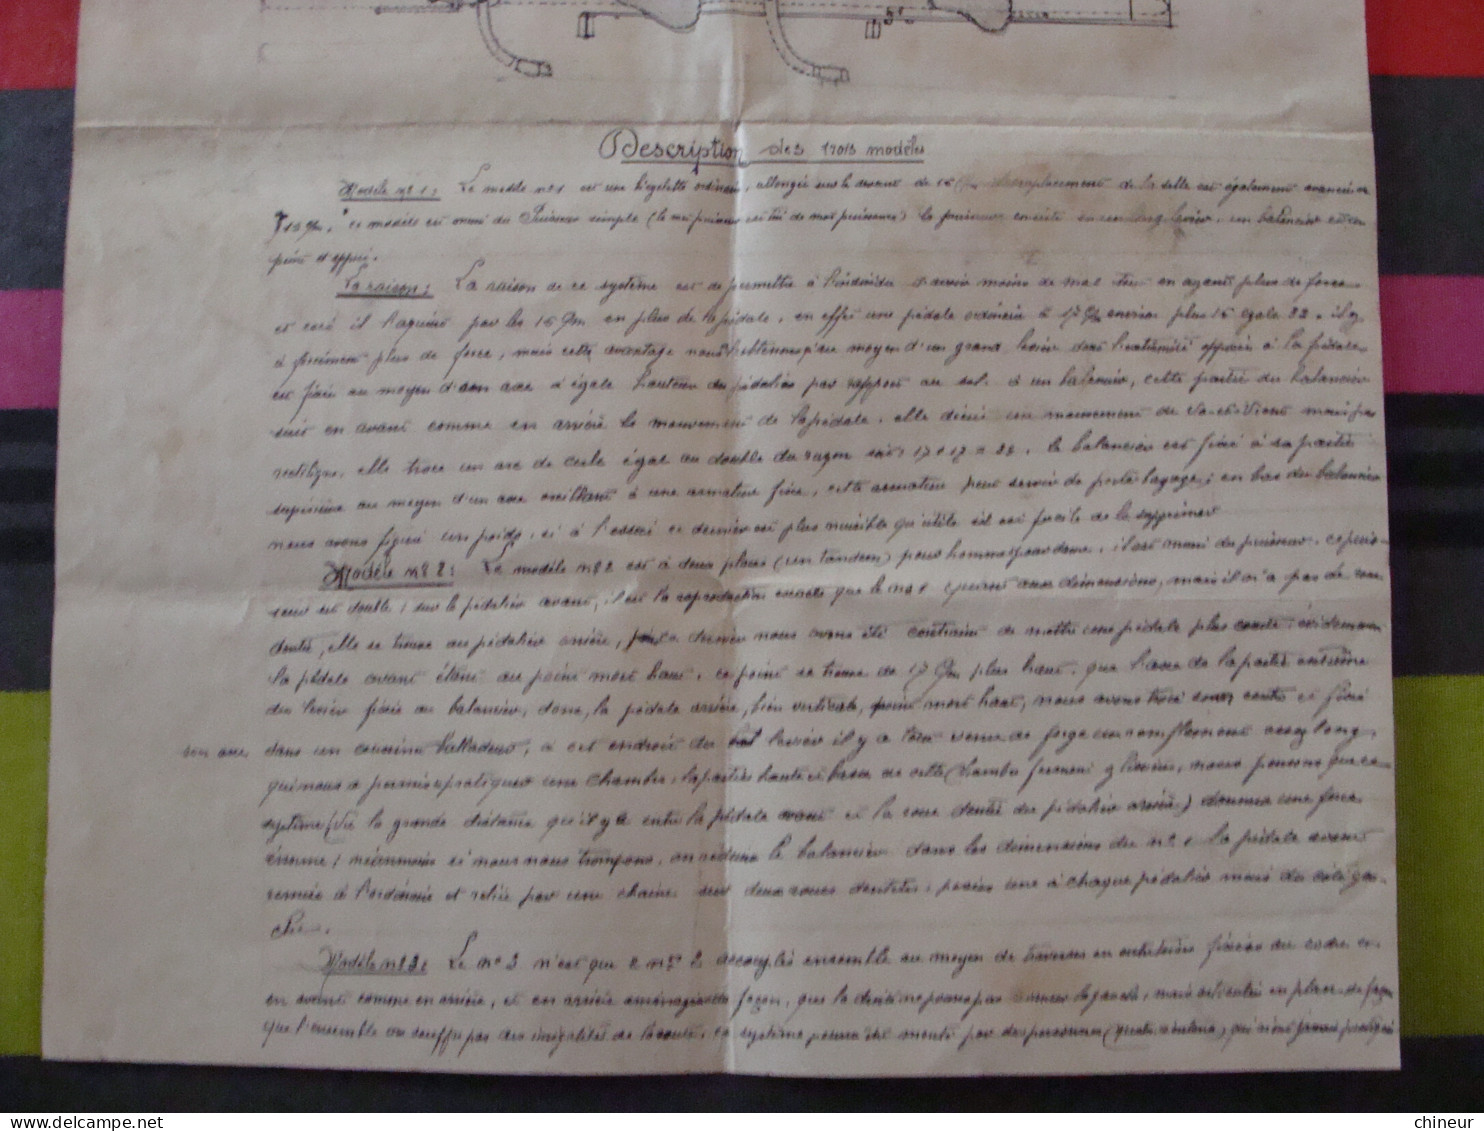 Description des trois modèles
Modèle n° 1: Le modèle n° 1 est une bicyclette ordinaire, allongée sur le devant de 15 l'emplacement de la selle est également avancée
15 %, ce modèle est muni du Puisseur simple (le mot puisseur est tiré de mot puissance) le puisseur consiste en un long levier, un balancier et un
point d'appui.
La raison: La raison de ce système est de permettre à l'individu d'avoir moins de mal tout en ayant plus de force
et ceci il l'acquière par les 15 %m en plus de la pédale, en effet une pédale ordinaire à 17 %m environ plus 15 égale 32. il y
a forcément plus de force, mais cette avantage nous l'obtenons qu'au moyen d'un grand levier dont l'extrémité opposée à la pédale
est fixée au moyen d'un axe à égale hauteur du pédalier par rapport au sol. à un balancier, cette partie du balancier
suit en avant comme en arrière le mouvement de la pédale. elle décrit un mouvement de va-et-vient mais pas
rectiligne, elle trace un arc de cercle égal au double du rayon soit 17 + 17 = . le balancier est fixé à sa partie
supérieure au moyen d'un axe oscillant à une armature fixe, cette armature peut servir de porte bagage; en bas du balancier
nous avons figuré un poids, si à l'essai ce dernier est plus nuisible qu'utile il est facile de le supprimer
Modèle n° 2: Le modèle n° 2 est à deux places (un tandem) pour hommes pour dame, il est muni du puisseur, ce puis-
seur est double; sur le pédalier avant, il est la reproduction exacte que le n° 1 quant aux dimensions, mais il n'a pas de roue
dentée, elle se trouve au pédalier arrière, dernier nous avons été contraint de mettre une pédale plus courte, évidemment
la pédale avant étant au point mort haut, ce point se trouve de 17 %m plus haut, que l'axe de la partie extrême
du levier fixée au balancier, donc, la pédale arrière, bien verticale, point mort haut, nous avons trois centre et fixé
son axe dans un coussinet balladeur, à cet endroit du levier il y a tout venu de forge un renflement assez long,
qui nous a permis de pratiquer une chambre; la parties haute et basse de cette chambre formant glissière, nous pensons que ce
système (vu la grande distance qu'il y a entre la pédale avant et la roue dentée du pédalier arrière) donnera une force
énorme; néanmoins si nous nous trompons, on réduira le balancier dans les dimensions du n° 1 la pédale avant
remise à l'ordinaire et reliée par une chaîne sur deux roues dentées; posées une à chaque pédalier mais du coté gau-
che.
Modèle n° 3: Le n° 3 n'est que 2 n° 2 accouplés ensemble au moyen de traverses ou entretoises fixées au cadre et
en avant comme en arrière, et en arrière aménagées de façon, que la droite ne puisse pas la gauche, mais articulée en place de façon
que l'ensemble ne souffre pas des inégalités de la route, ce système pourra être monté par des personnes (quatre ) qui n'ont jamais pratiqué
chineur